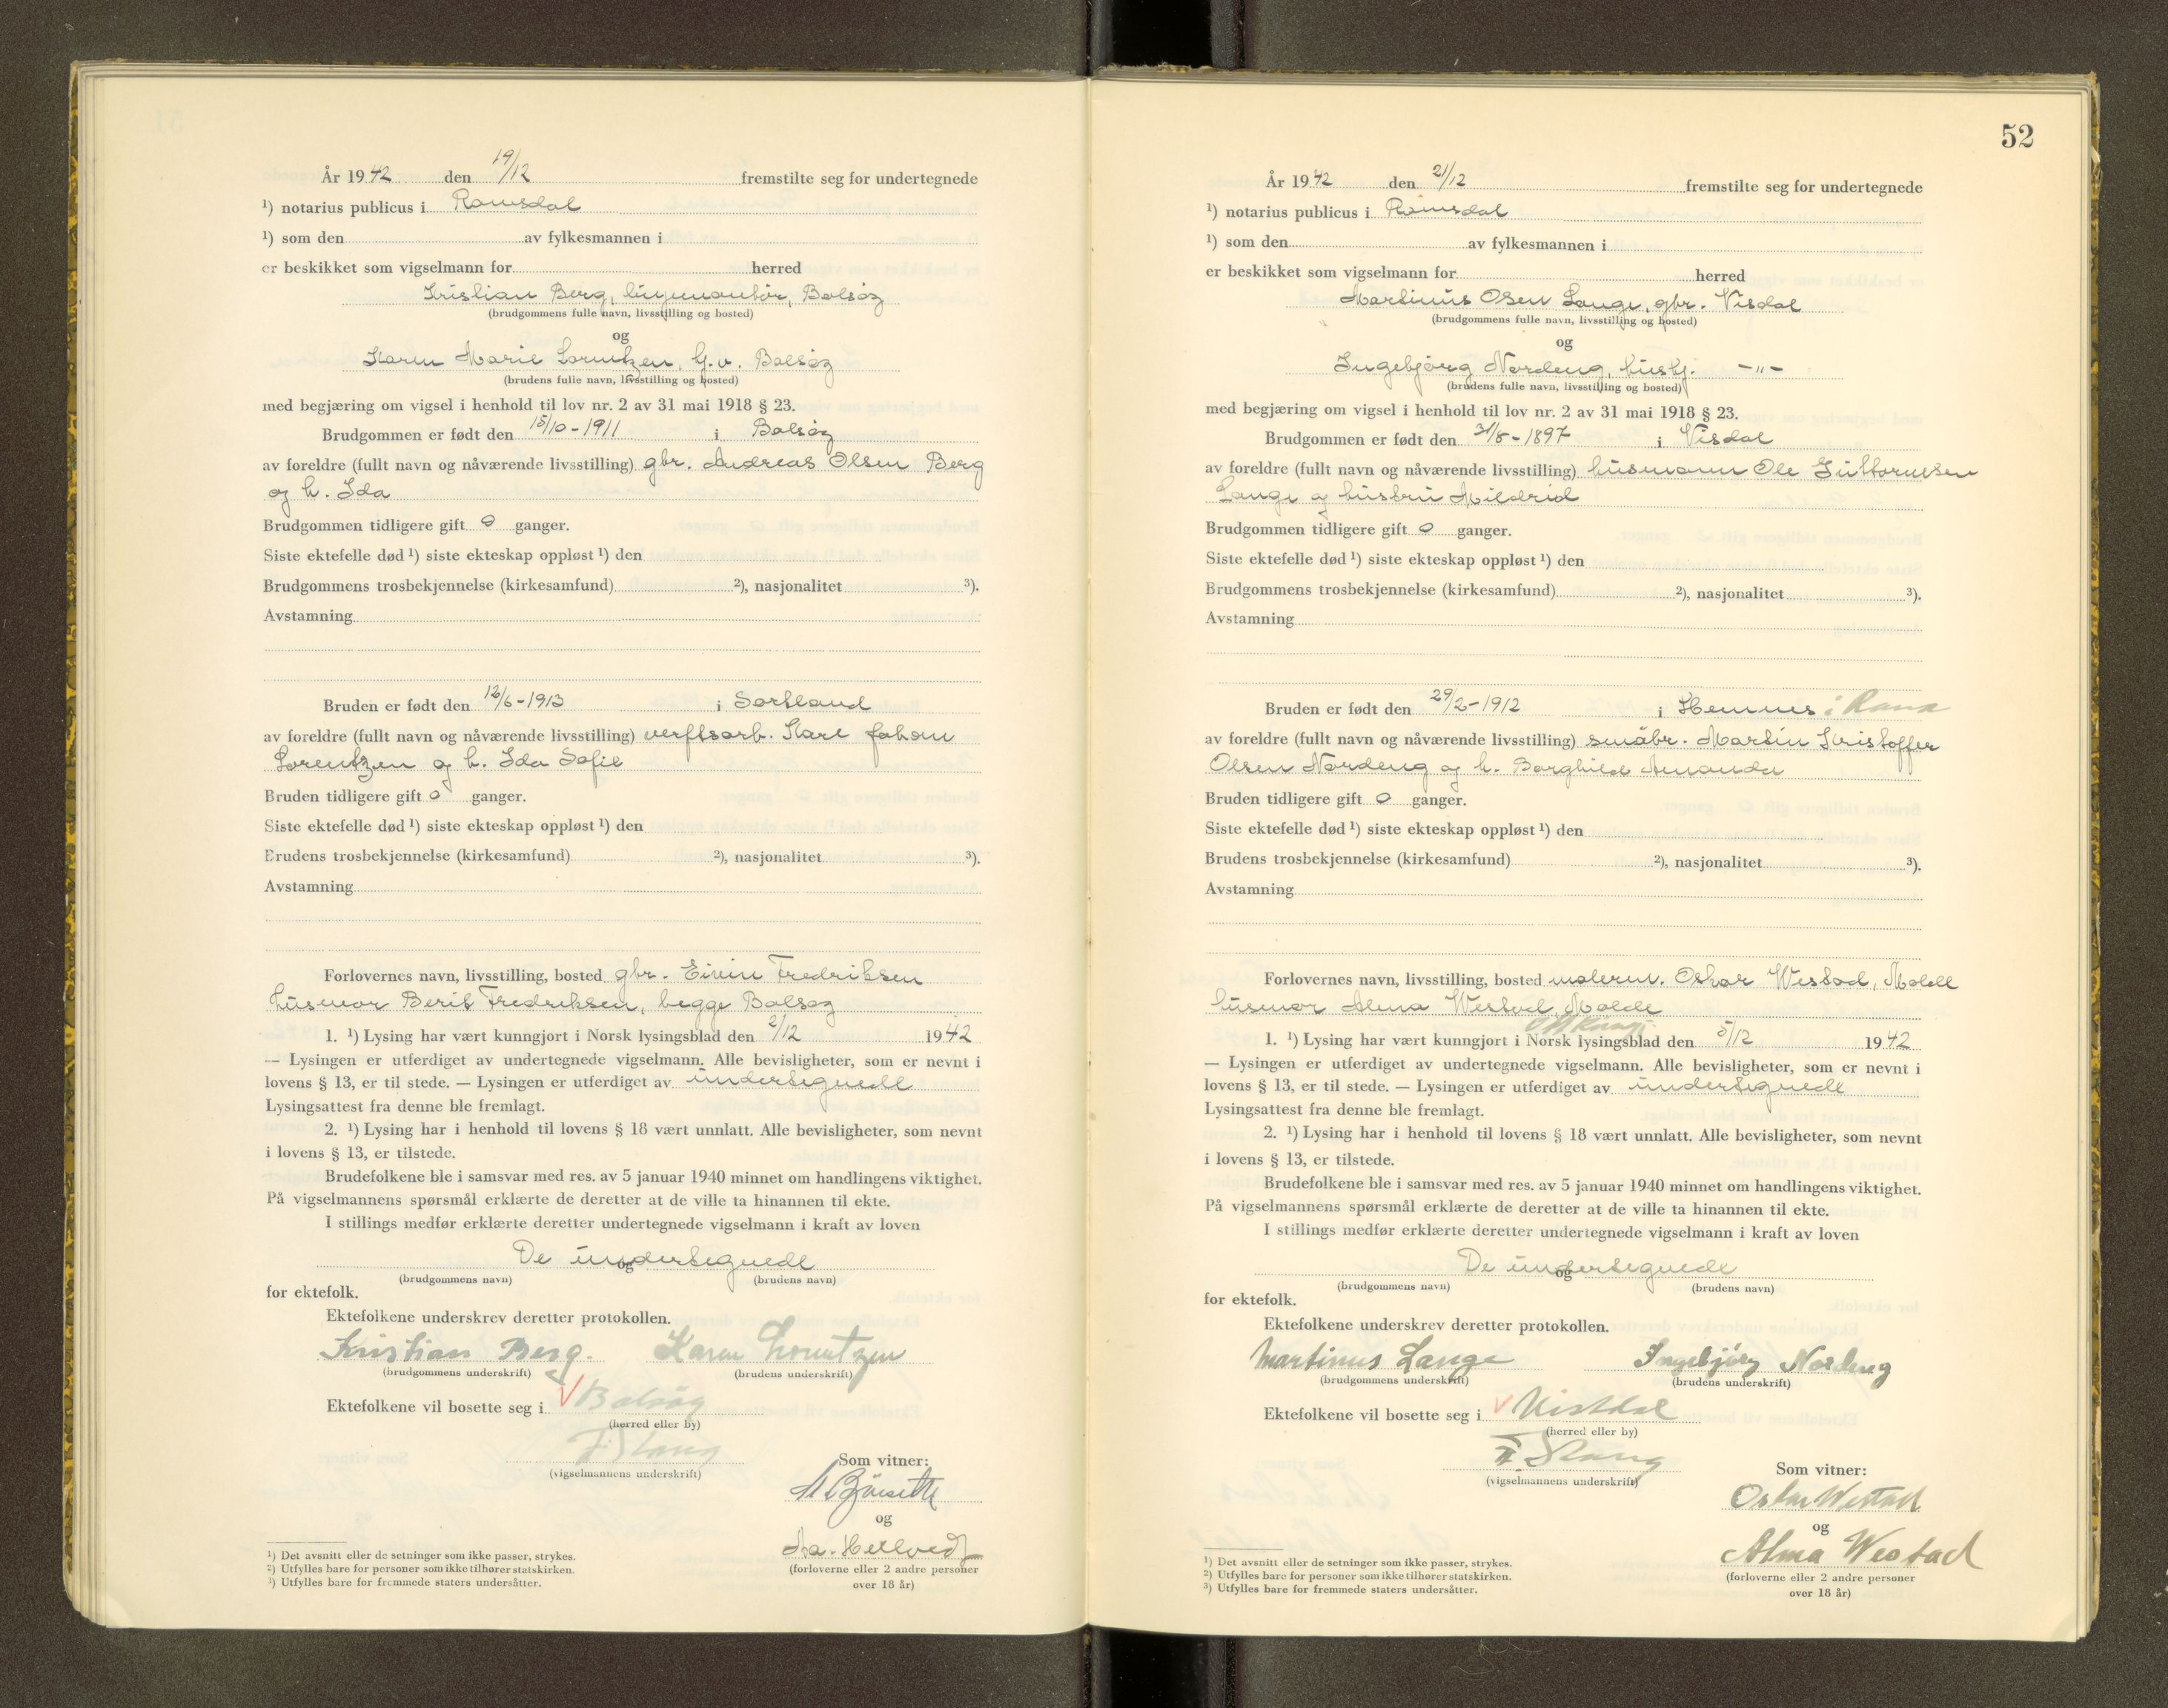 År 1942 den 19/12 fremstilte seg for undertegnede
¹) notarius publicus i Romsdal
¹) som den av fylkesmannen i
er beskikket som vigselmann for herred
Kristian Berg, Bolsøy
(brudgommens fulle navn, livsstilling og bosted)
og
Karen Marie Lorentzen, h.v. Bolsøy
(brudens fulle navn, livsstilling og bosted)
med begjæring om vigsel i henhold til lov nr. 2 av 31 mai 1918 § 23.
Brudgommen er født den 15/10-1911 i Bolsøy
av foreldre (fullt navn og nåværende livsstilling) gbr. Andreas Olsen Berg
og h. Ida
Brudgommen tidligere gift 0 ganger.
Siste ektefelle død ¹) siste ekteskap oppløst ¹) den
Brudgommens trosbekjennelse (kirkesamfund) ²), nasjonalitet ³).
Avstamning
Bruden er født den 12/6-1913 i Sortland
av foreldre (fullt navn og nåværende livsstilling) verftsarb. Karl Johan
Lorentzen og h. Ida Sofie
Bruden tidligere gift 0 ganger.
Siste ektefelle død ¹) siste ekteskap oppløst ¹) den
Brudens trosbekjennelse (kirkesamfund) ²), nasjonalitet ³).
Avstamning
Forlovernes navn, livsstilling, bosted gbr. Eivin Fredriksen
husmor Berit Fredriksen, begge Bolsøy
1. ¹) Lysing har vært kunngjort i Norsk lysingsblad den 2/12 1942
— Lysingen er utferdiget av undertegnede vigselmann. Alle bevisligheter, som er nevnt i
lovens § 13, er til stede. — Lysingen er utferdiget av undertegnede
Lysingsattest fra denne ble fremlagt.
2. ¹) Lysing har i henhold til lovens § 18 vært unnlatt. Alle bevisligheter, som nevnt
i lovens § 13, er tilstede.
Brudefolkene ble i samsvar med res. av 5 januar 1940 minnet om handlingens viktighet.
På vigselmannens spørsmål erklærte de deretter at de ville ta hinannen til ekte.
I stillings medfør erklærte deretter undertegnede vigselmann i kraft av loven
De undertegnede
og
(brudgommens navn) (brudens navn)
for ektefolk.
Ektefolkene underskrev deretter protokollen.
Kristian Berg. Karen Lorentzen
(brudgommens underskrift) (brudens underskrift)
Ektefolkene vil bosette seg i Bolsøy
(herred eller by)
F. Stang
(vigselmannens underskrift)
Som vitner:
og
(forloverne eller 2 andre personer
over 18 år)
¹) Det avsnitt eller de setninger som ikke passer, strykes.
²) Utfylles bare for personer som ikke tilhører statskirken.
³) Utfylles bare for fremmede staters undersåtter.
52
År 1942 den 21/12 fremstilte seg for undertegnede
¹) notarius publicus i Romsdal
¹) som den av fylkesmannen i
er beskikket som vigselmann for herred
Martinus Osen Lange, gbr. Visdal
(brudgommens fulle navn, livsstilling og bosted)
og
Ingebjörg Nordeng, hush. -"-
(brudens fulle navn, livsstilling og bosted)
med begjæring om vigsel i henhold til lov nr. 2 av 31 mai 1918 § 23.
Brudgommen er født den 31/8-1897 i Visdal
av foreldre (fullt navn og nåværende livsstilling) husmann Ole Guttormsen
Lange og hustru Mildrid
Brudgommen tidligere gift 0 ganger.
Siste ektefelle død ¹) siste ekteskap oppløst ¹) den
Brudgommens trosbekjennelse (kirkesamfund) ²), nasjonalitet ³).
Avstamning
Bruden er født den 29/2-1912 i Hemnes i Rana
av foreldre (fullt navn og nåværende livsstilling) småbr. Martin Kristoffer
Olsen Nordeng og h. Borghild Amanda
Bruden tidligere gift 0 ganger.
Siste ektefelle død ¹) siste ekteskap oppløst ¹) den
Brudens trosbekjennelse (kirkesamfund) ²), nasjonalitet ³).
Avstamning
Forlovernes navn, livsstilling, bosted malerm. Oskar Westad, Molde
husmor Alma Westad, Molde
1. ¹) Lysing har vært kunngjort i Norsk lysingsblad den 5/12 1942
— Lysingen er utferdiget av undertegnede vigselmann. Alle bevisligheter, som er nevnt i
lovens § 13, er til stede. — Lysingen er utferdiget av undertegnede
Lysingsattest fra denne ble fremlagt.
2. ¹) Lysing har i henhold til lovens § 18 vært unnlatt. Alle bevisligheter, som nevnt
i lovens § 13, er tilstede.
Brudefolkene ble i samsvar med res. av 5 januar 1940 minnet om handlingens viktighet.
På vigselmannens spørsmål erklærte de deretter at de ville ta hinannen til ekte.
I stillings medfør erklærte deretter undertegnede vigselmann i kraft av loven
De undertegnede
og
(brudgommens navn) (brudens navn)
for ektefolk.
Ektefolkene underskrev deretter protokollen.
Martinus Lange Ingebjörg Nordeng
(brudgommens underskrift) (brudens underskrift)
Ektefolkene vil bosette seg i Vistdal
(herred eller by)
F. Stang
(vigselmannens underskrift)
Som vitner:
Oskar Westad
og
Alma Westad
(forloverne eller 2 andre personer
over 18 år)
¹) Det avsnitt eller de setninger som ikke passer, strykes.
²) Utfylles bare for personer som ikke tilhører statskirken.
³) Utfylles bare for fremmede staters undersåtter.